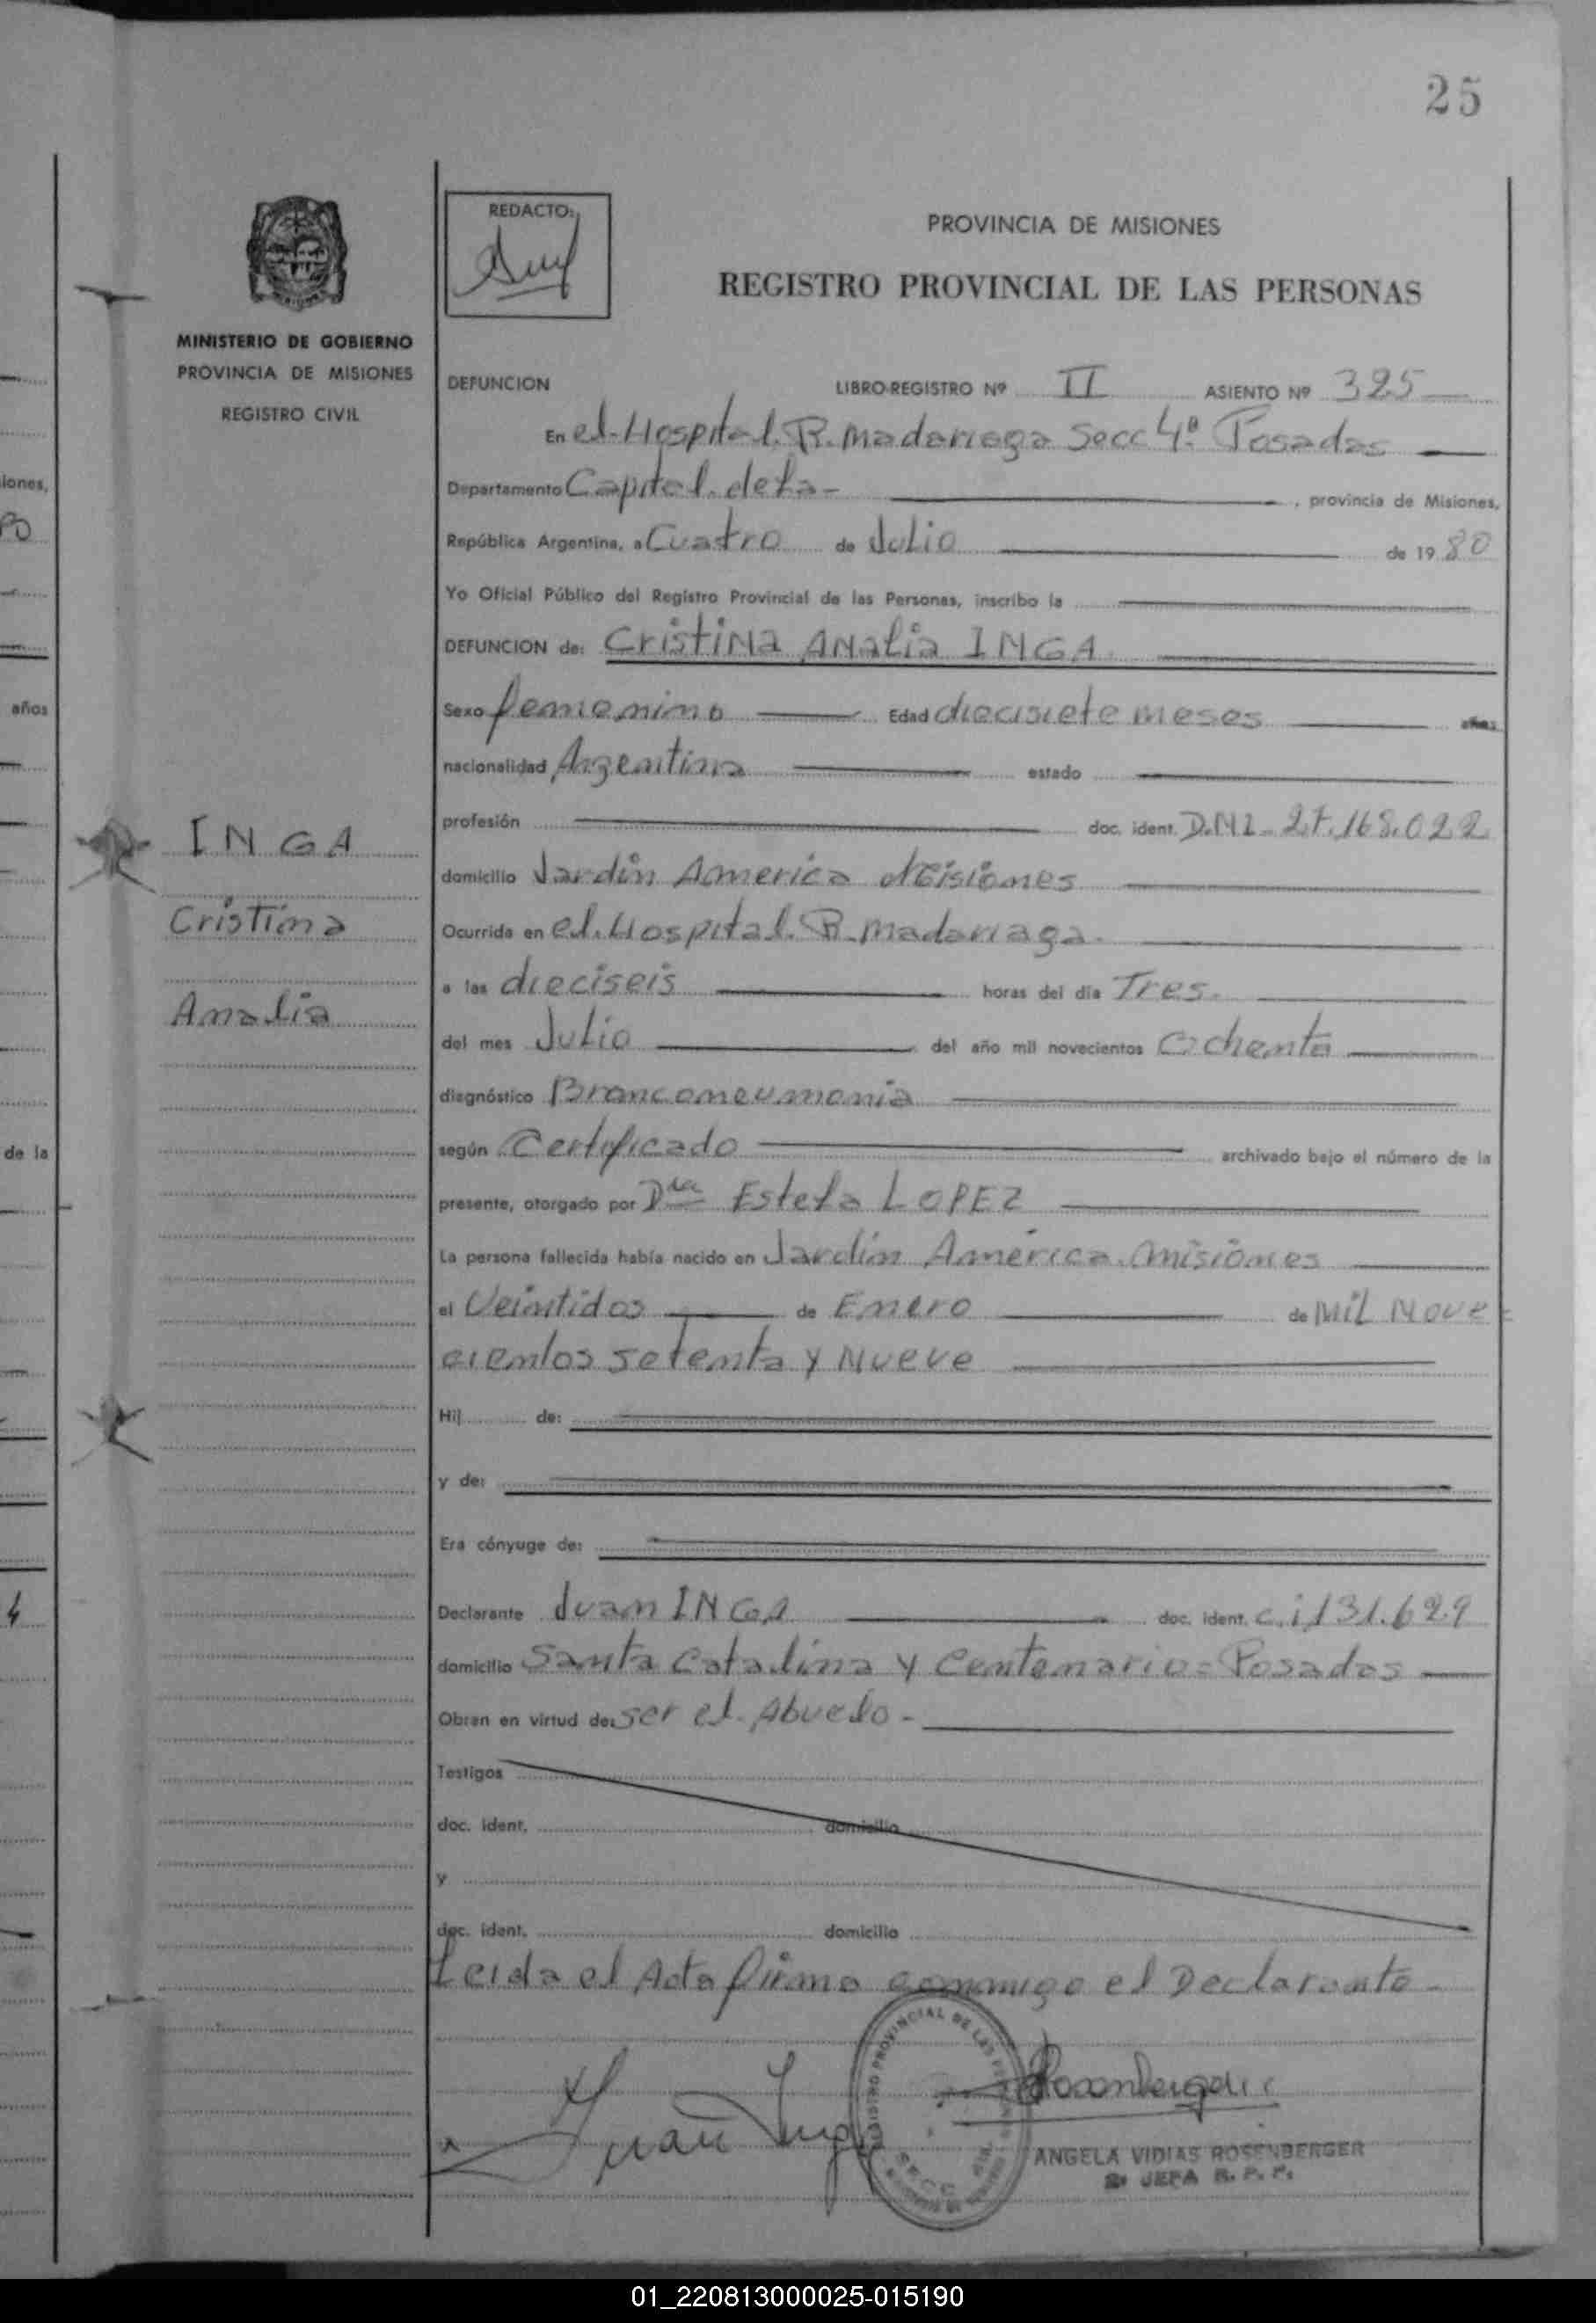 25
REDACTO:
PROVINCIA DE MISIONES
REGISTRO PROVINCIAL DE LAS PERSONAS
MINISTERIO DE GOBIERNO
PROVINCIA DE MISIONES
REGISTRO CIVIL
DEFUNCION LIBRO-REGISTRO Nº II ASIENTO Nº 325
En el Hospital R. Madariaga Secc 4ª Posadas
Departamento Capital de la - , provincia de Misiones,
República Argentina, a Cuatro de Julio de 1980
Yo Oficial Público del Registro Provincial de las Personas, inscribo la
DEFUNCION de: Cristina Analia INGA
Sexo femenino Edad diecisiete meses años
nacionalidad Argentina estado
profesión doc. ident. D.N.I. 27.168.022
domicilio Jardín America Misiones
Ocurrida en el Hospital R. Madariaga.
a las dieciseis horas del día Tres.
del mes Julio del año mil novecientos Ochenta
diagnóstico Bronconeumonia
según Certificado archivado bajo el número de la
presente, otorgado por Dra Estela LOPEZ
La persona fallecida había nacido en Jardín América. Misiones
el Veintidos de Enero de Mil Nove
cientos setenta y Nueve
Hij de:
y de:
Era cónyuge de:
Declarante Juan INGA doc. ident. c.i 131.629
domicilio Santa Catalina y Centenario = Posadas
Obran en virtud de: ser el Abuelo -
Testigos
doc. ident. domicilio
y
doc. ident. domicilio
Leida el Acta firma conmigo el Declarante -
Juan Inga
ANGELA VIDIAS ROSENBERGER
JEFA R. P. P.
INGA
Cristina
Analia
iones,
años
de la
4
01_220813000025-015190